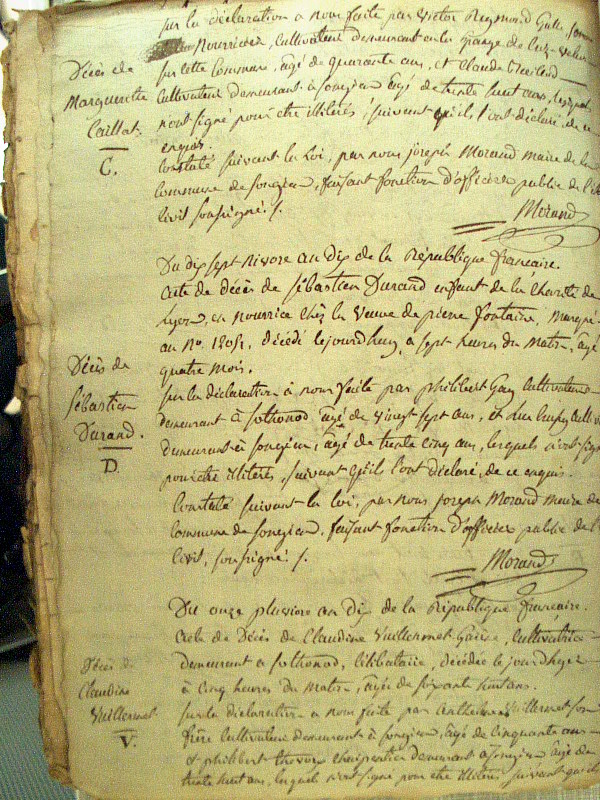 sur la déclaration a nous faite par Victor Reymond Gulle, son
Nourricier, Cultivateur demeurant en la grange de
sur cette Commune, agé de quarante ans, et Claude
Cultivateur demeurant a Songieu agé de trente huit ans, lesquels
n'ont signé pour être illiterés, suivant qu'ils l'ont déclaré, de ce
enquis.
Constaté suivant la Loi, par nous joseph Morand maire de la
Commune de Songieu, faisant fonction d'officier public de l'
Civil soussigné ./.
Morand
Décès de
Marguerite
Caillat.
C.
Du dix sept Nivose an dix de la République francaise.
Acte de décès de Sébastien Durand enfant de la Charité de
Lyon, en nourrice chés la Veuve de pierre fontaine, Marqué
au No. 1205, décédé lejourdhuy, a sept heures du Matin, agé
quatre mois.
sur la déclaration a nous faite par philibert Gay Cultivateur
demeurant à Sothonod agé de Vingt sept ans, et
demeurant à Songieu, agé de trente cinq ans, lesquels n'ont signé
pour être illiterés, suivant qu'ils l'ont déclaré, de ce enquis.
Constaté suivant la loi, par nous joseph Morand maire de
Commune de Songieu, faisant fonction d'officier public de l'
Civil, soussigné ./.
Morand
Décès de
Sébastien
Durand.
D.
Du onze pluviose an dix de la République francaise.
Acte de Décès de Claudine Vuillermet Cultivatrice
demeurant a Sothonod, Célibataire, décédée lejourdhuy
à Cinq heures du Matin, agée de soixante huit ans.
sur la déclaration a nous faite par Anthelme Vuillermet son
frère Cultivateur demeurant à Songieu, agé de Cinquante ans
et philibert Charpentier demeurant a Songieu agé de
trente huit ans, lesquels n'ont signé pour être illiterés suivant qu'ils
Décès de
Claudine
Vuillermet
V.